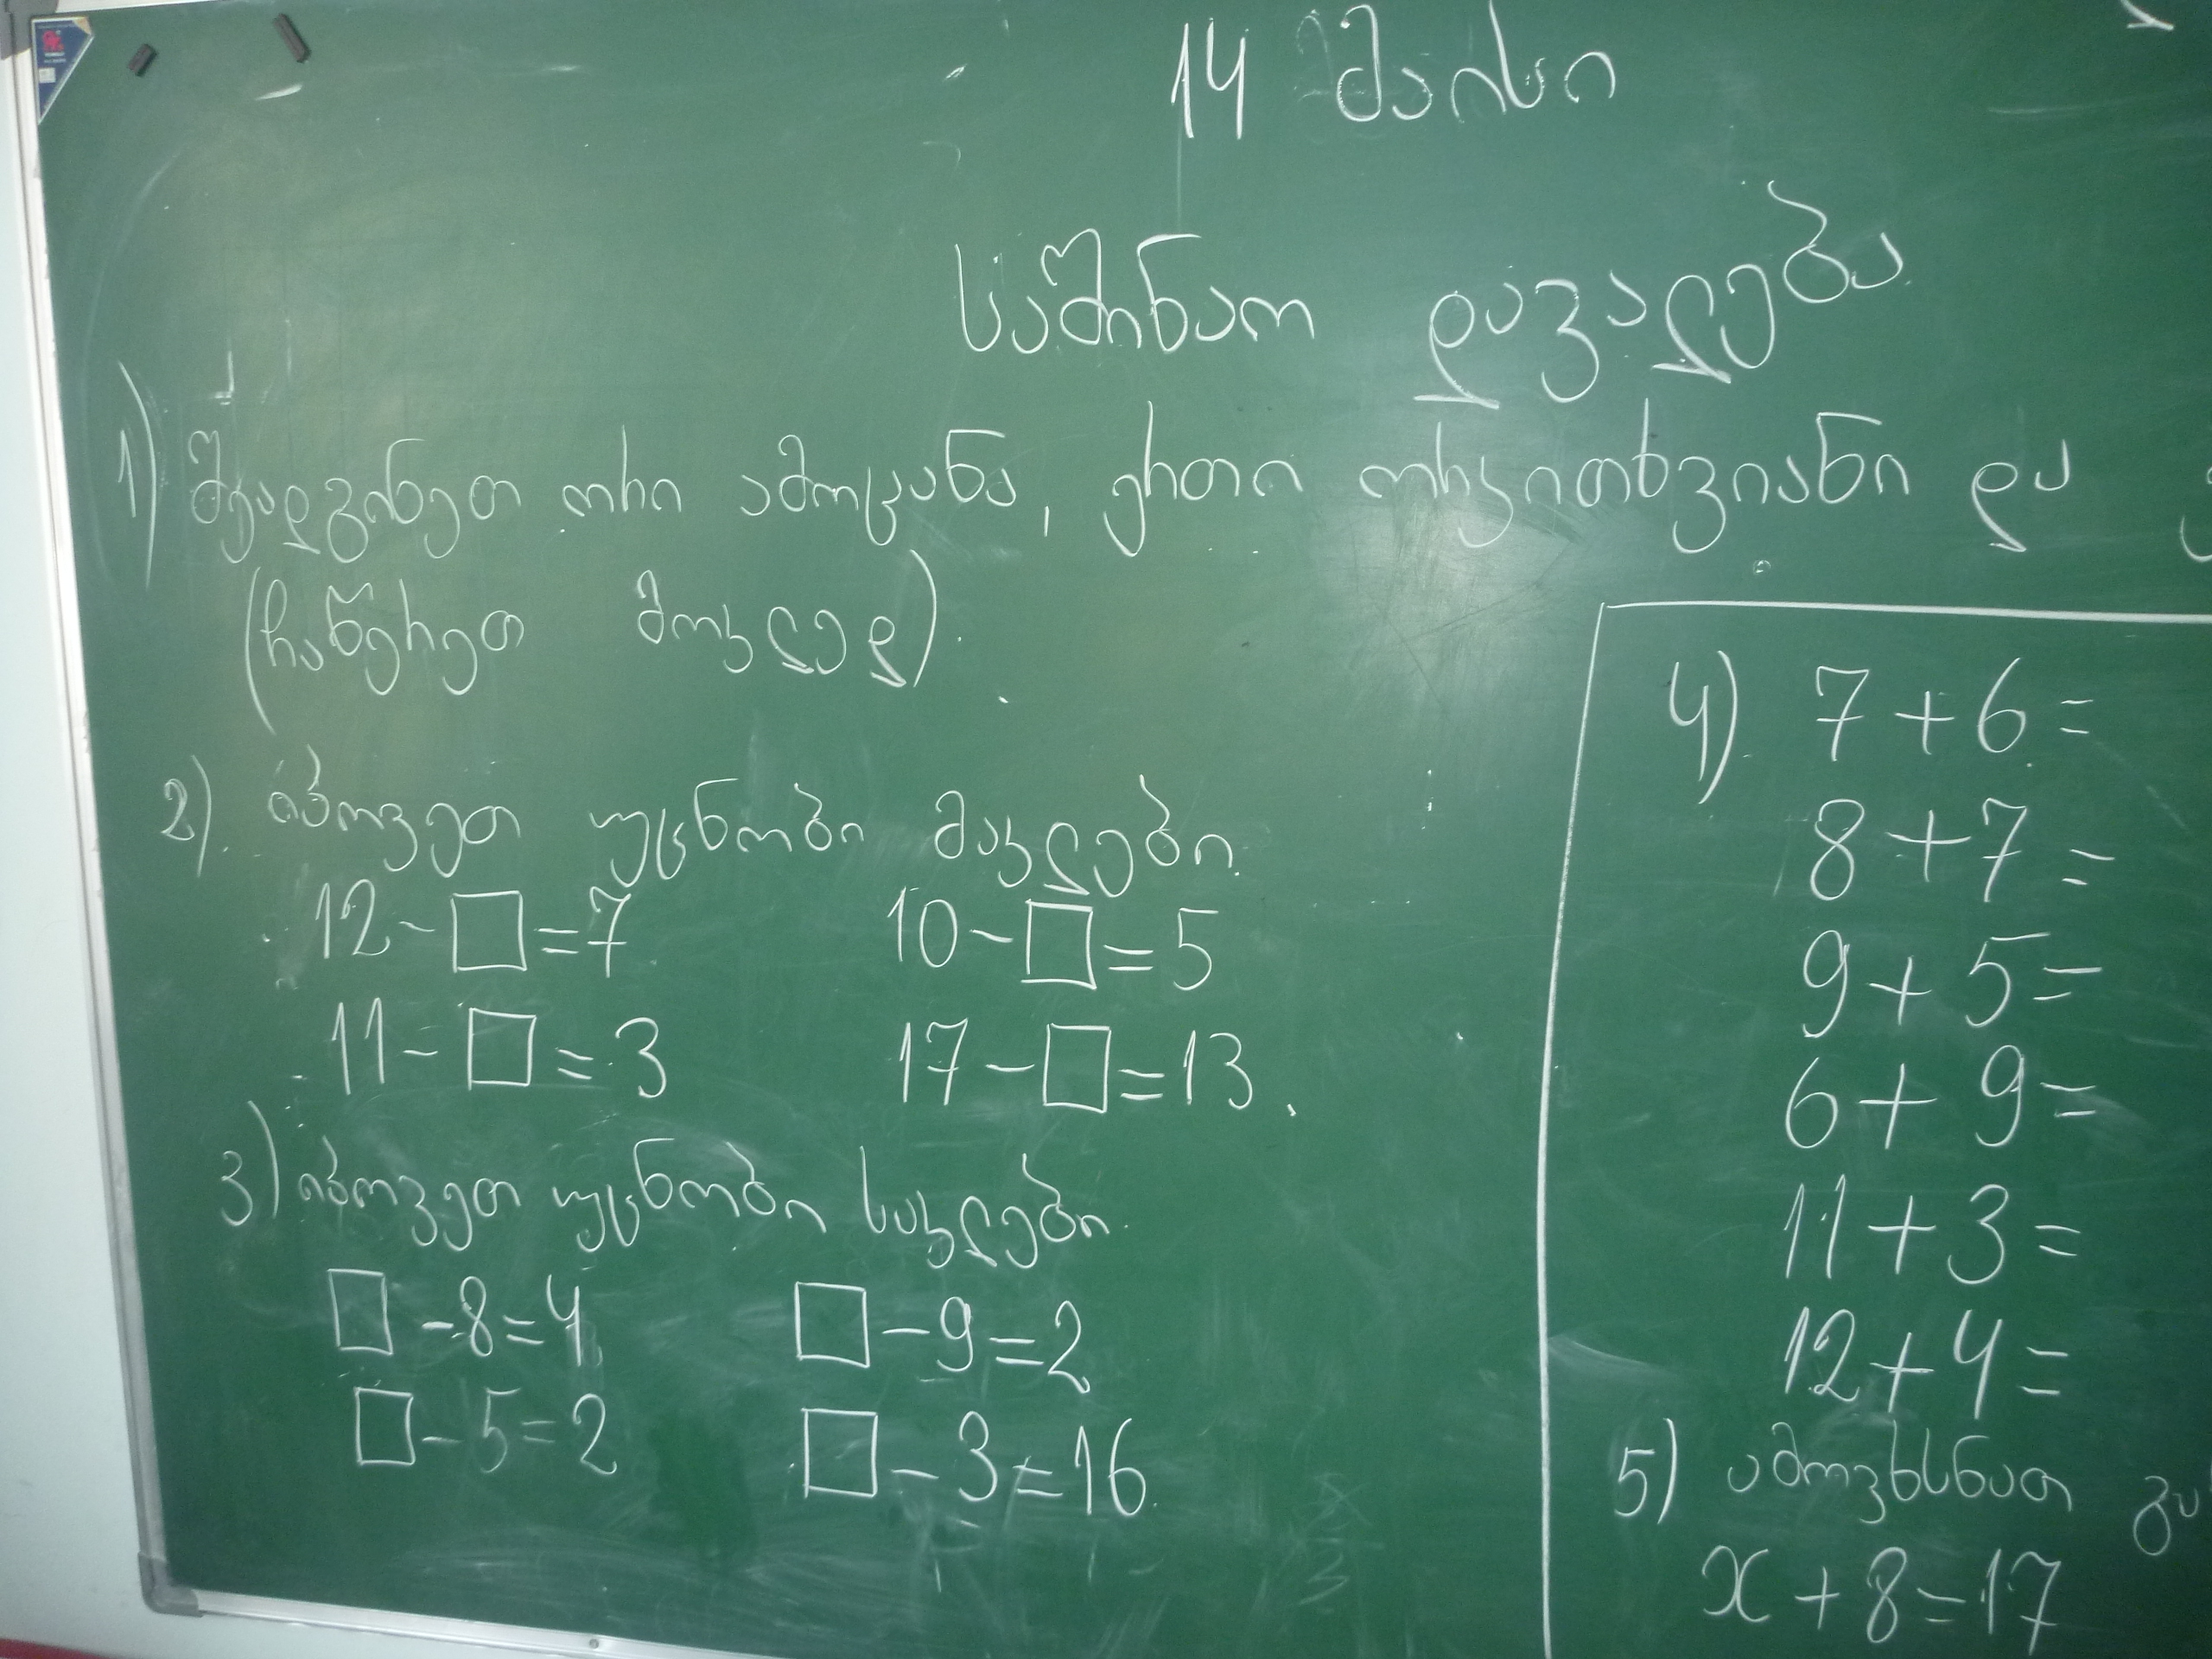 14 მაისი
საშინაო დავალება
1) შეადგინეთ ორი ამოცანა, ერთი ორკითხვიანი და
(ჩაწერეთ მოკლედ).
2) იპოვეთ უცნობი მაკლები.
12-□=7 10-□=5
11-□=3 17-□=13.
3) იპოვეთ უცნობი საკლები.
□-8=4 □-9=2
□-5=2 □-3=16.
4) 7+6=
8+7=
9+5=
6+9=
11+3=
12+4=
5) ამოვხსნათ
x+8=17